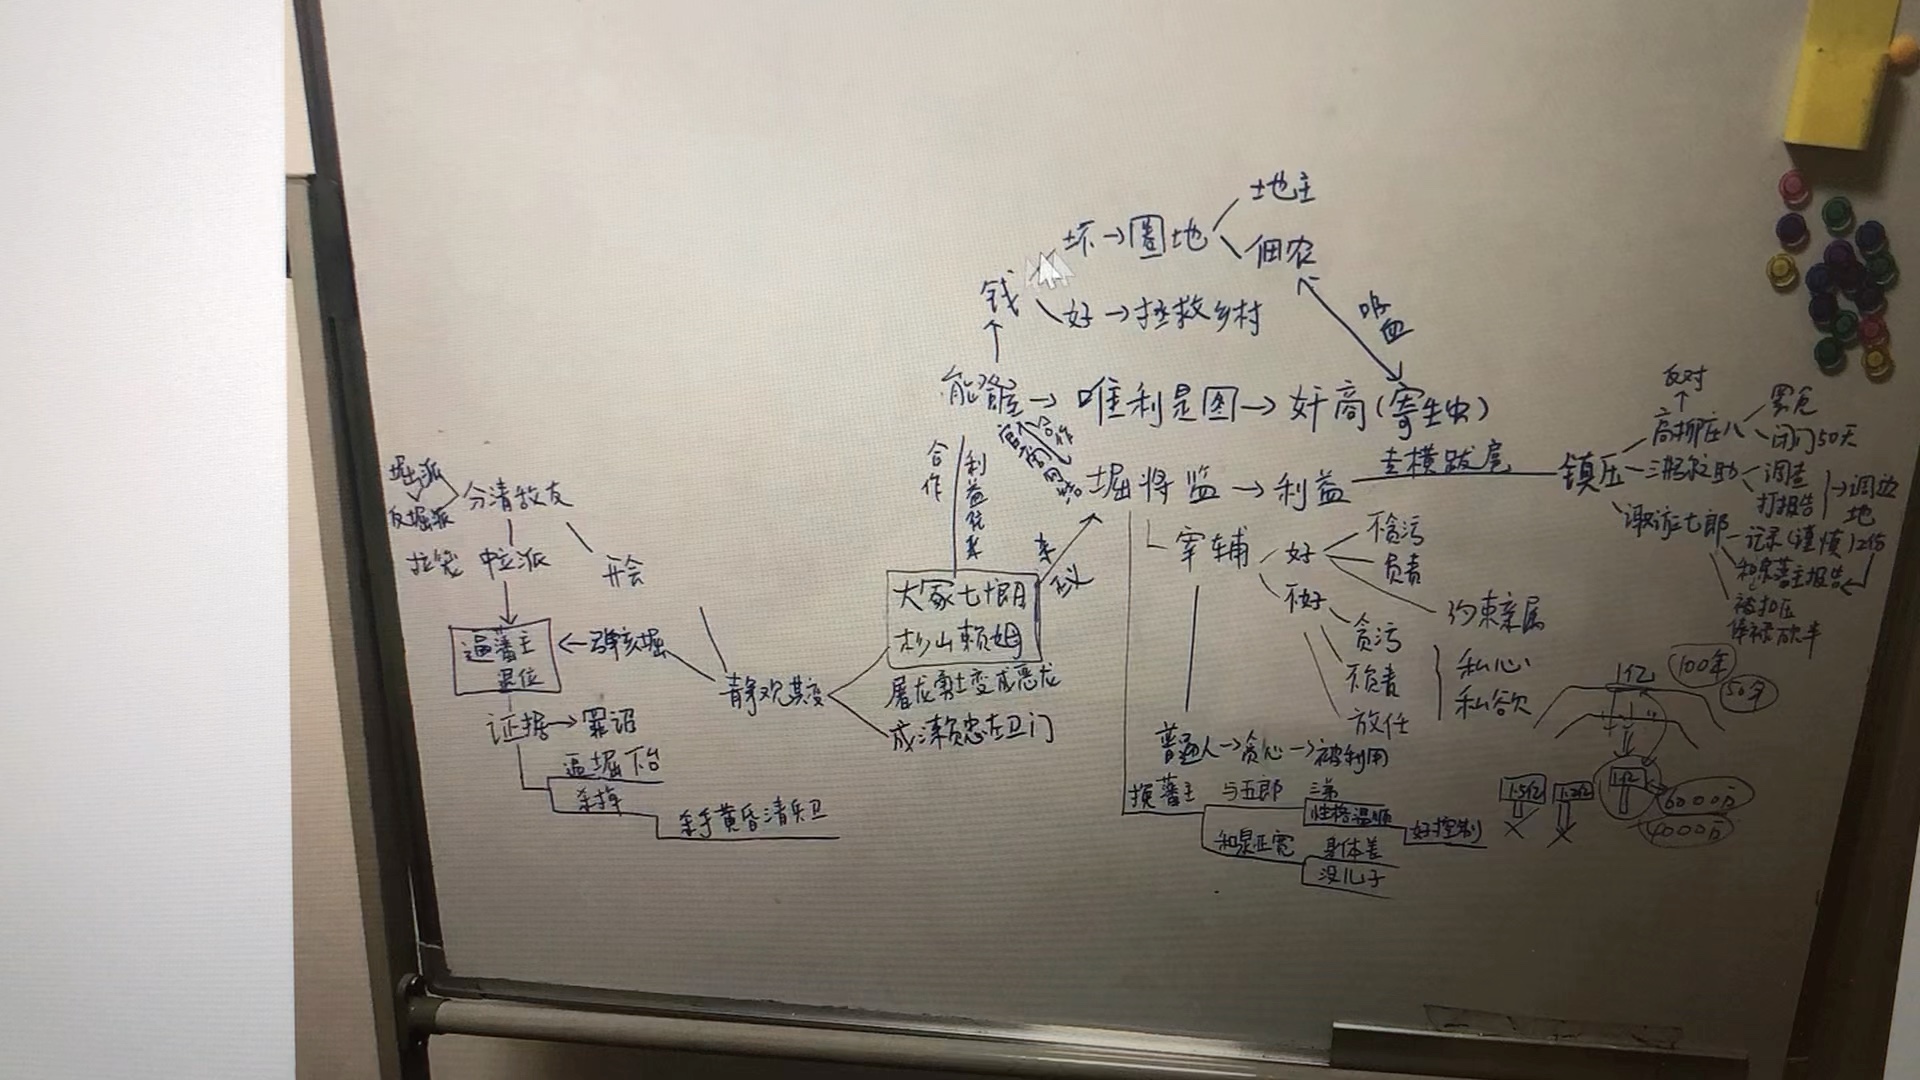 地主
坏→圈地
佃农
钱
好→拯救乡村
吸血
能登屋→唯利是图→奸商(寄生虫)
合作
利益
合作
官商
堀将监→利益
专横跋扈
镇压
反对
高柳庄八
罢免
闭门50天
调查
打报告
→调边地
诹访七郎
记录(谨慎)
被扣压
俸禄砍半
宰辅
好
不贪污
负责
约束亲属
不好
贪污
不负责
放任
私心
私欲
普通人→贪心→被利用
换藩主
与五郎
三弟
性格温顺
好控制
和泉正宽
身体差
没儿子
堀派
反堀派
分清敌友
拉笼 中立派
开会
逼藩主
退位
←弹劾堀
静观其变
大冢七十郎
杉山赖母
屠龙勇士变成恶龙
成泽赖忠左卫门
证据→罪诏
逼堀下台
杀掉
杀手黄昏清兵卫
1亿
100年
50年
1.5亿
1.2亿
1亿
6000万
4000万